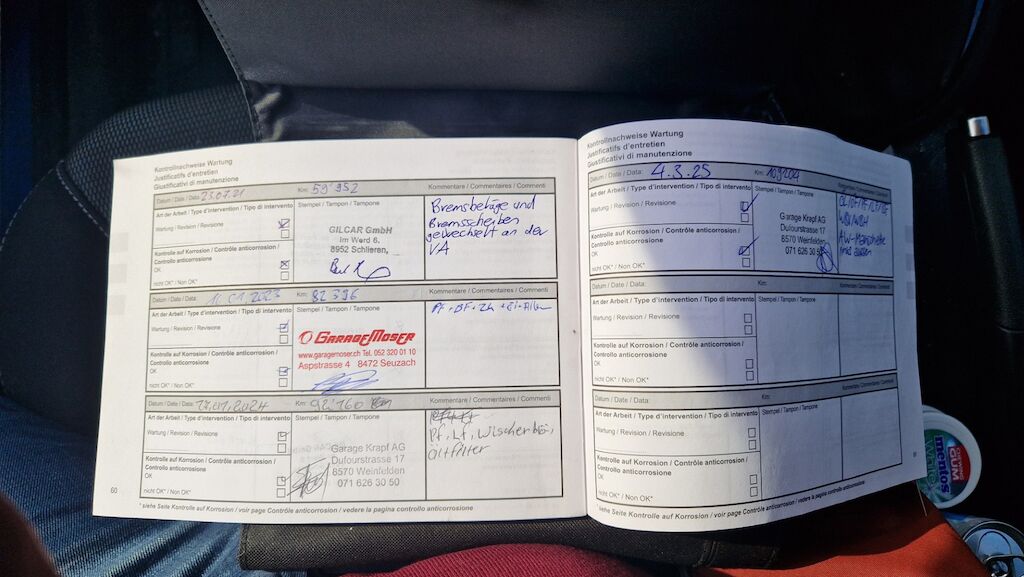 Kontrollnachweise Wartung
Justificatifs d'entretien
Giustificativi di manutenzione
Datum / Date / Data: 23.07.21 Km: 59'952 Kommentare / Commentaires / Commenti
Art der Arbeit / Type d'intervention / Tipo di intervento Stempel / Tampon / Tampone
Wartung / Revision / Revisione
Kontrolle auf Korrosion / Contrôle anticorrosion /
Controllo anticorrosione
OK
nicht OK* / Non OK*
GILCAR GmbH
Im Werd 6,
8952 Schlieren,
Bremsbeläge und
Bremsscheiben
gewechselt an der
VA
Datum / Date / Data: 11.01.2023 Km: 82396 Kommentare / Commentaires / Commenti
Art der Arbeit / Type d'intervention / Tipo di intervento Stempel / Tampon / Tampone
Wartung / Revision / Revisione
Kontrolle auf Korrosion / Contrôle anticorrosion /
Controllo anticorrosione
OK
nicht OK* / Non OK*
GARAGEMOSER
www.garagemoser.ch Tel. 052 320 01 10
Aspstrasse 4 8472 Seuzach
Datum / Date / Data: 17.01.2024 Km: 92'160 Km Kommentare / Commentaires / Commenti
Art der Arbeit / Type d'intervention / Tipo di intervento Stempel / Tampon / Tampone
Wartung / Revision / Revisione
Kontrolle auf Korrosion / Contrôle anticorrosion /
Controllo anticorrosione
OK
nicht OK* / Non OK*
Garage Krapf AG
Dufourstrasse 17
8570 Weinfelden
071 626 30 50
Pf, Lf, Wischer
Ölfilter
60
* siehe Seite Kontrolle auf Korrosion / voir page Contrôle anticorrosion / vedere la pagina controllo anticorrosione
Kontrollnachweise Wartung
Justificatifs d'entretien
Giustificativi di manutenzione
Datum / Date / Data: 4.3.25 Km: Kommentare / Commentaires / Commenti
Art der Arbeit / Type d'intervention / Tipo di intervento Stempel / Tampon / Tampone
Wartung / Revision / Revisione
Kontrolle auf Korrosion / Contrôle anticorrosion /
Controllo anticorrosione
OK
nicht OK* / Non OK*
Garage Krapf AG
Dufourstrasse 17
8570 Weinfelden
071 626 30 50
Datum / Date / Data: Km: Kommentare / Commentaires / Commenti
Art der Arbeit / Type d'intervention / Tipo di intervento Stempel / Tampon / Tampone
Wartung / Revision / Revisione
Kontrolle auf Korrosion / Contrôle anticorrosion /
Controllo anticorrosione
OK
nicht OK* / Non OK*
Datum / Date / Data: Km: Kommentare / Commentaires / Commenti
Art der Arbeit / Type d'intervention / Tipo di intervento Stempel / Tampon / Tampone
Wartung / Revision / Revisione
Kontrolle auf Korrosion / Contrôle anticorrosion /
Controllo anticorrosione
OK
nicht OK* / Non OK*
* siehe Seite Kontrolle auf Korrosion / voir page Contrôle anticorrosion / vedere la pagina controllo anticorrosione
mentos
GUM